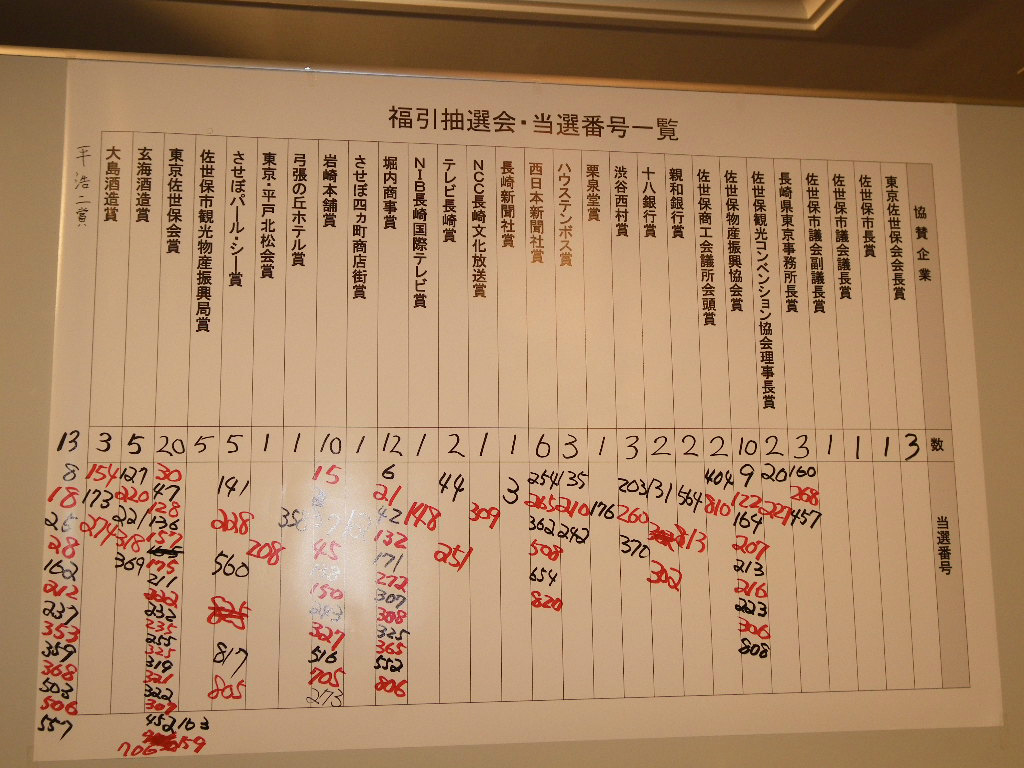 福引抽選会・当選番号一覧
協賛企業
数
当選番号
東京佐世保会会長賞
3
佐世保市長賞
1
佐世保市議会議長賞
1
佐世保市議会副議長賞
1
長崎県東京事務所長賞
3
160
268
457
佐世保観光コンベンション協会理事長賞
2
20
227
佐世保物産振興協会賞
10
9
122
164
207
213
216
223
306
808
佐世保商工会議所会頭賞
2
404
810
親和銀行賞
2
564
213
十八銀行賞
2
131
302
渋谷西村賞
3
203
260
370
栗泉堂賞
1
176
ハウステンボス賞
3
135
210
242
西日本新聞社賞
6
254
265
362
508
654
820
長崎新聞社賞
1
3
NCC長崎文化放送賞
1
309
テレビ長崎賞
2
44
251
NIB長崎国際テレビ賞
1
148
堀内商事賞
12
6
21
42
132
171
272
307
308
325
365
552
806
させぼ四ヵ町商店街賞
1
岩崎本舗賞
10
15
45
150
243
327
516
705
273
弓張の丘ホテル賞
1
東京・平戸北松会賞
1
208
させぼパール・シー賞
5
141
228
560
817
805
佐世保市観光物産振興局賞
5
東京佐世保会賞
20
30
47
128
136
157
175
211
232
235
255
325
319
321
322
307
452
163
706
159
玄海酒造賞
5
127
220
221
318
369
大島酒造賞
3
154
173
274
平 浩二賞
13
8
18
26
28
162
212
237
353
359
368
503
506
557